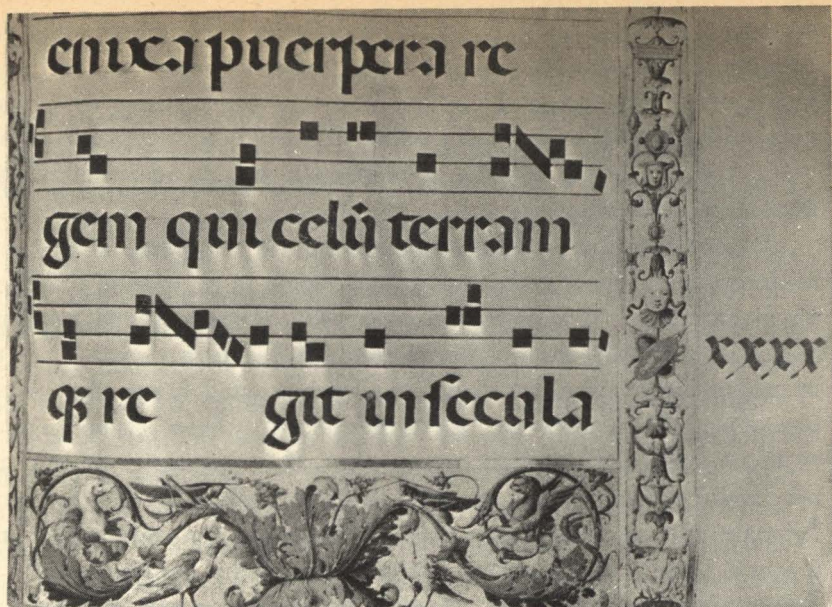 enixa puerpera re
gem qui celū terram
qꝫ re git in secula
xxxx